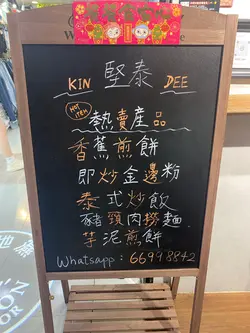 KIN 堅泰 DEE
HOT ITEM
熱賣産品
香蕉煎餅
即炒金邊粉
泰式炒飯
豬頸肉撈麵
芋泥煎餅
Whatsapp: 66998842